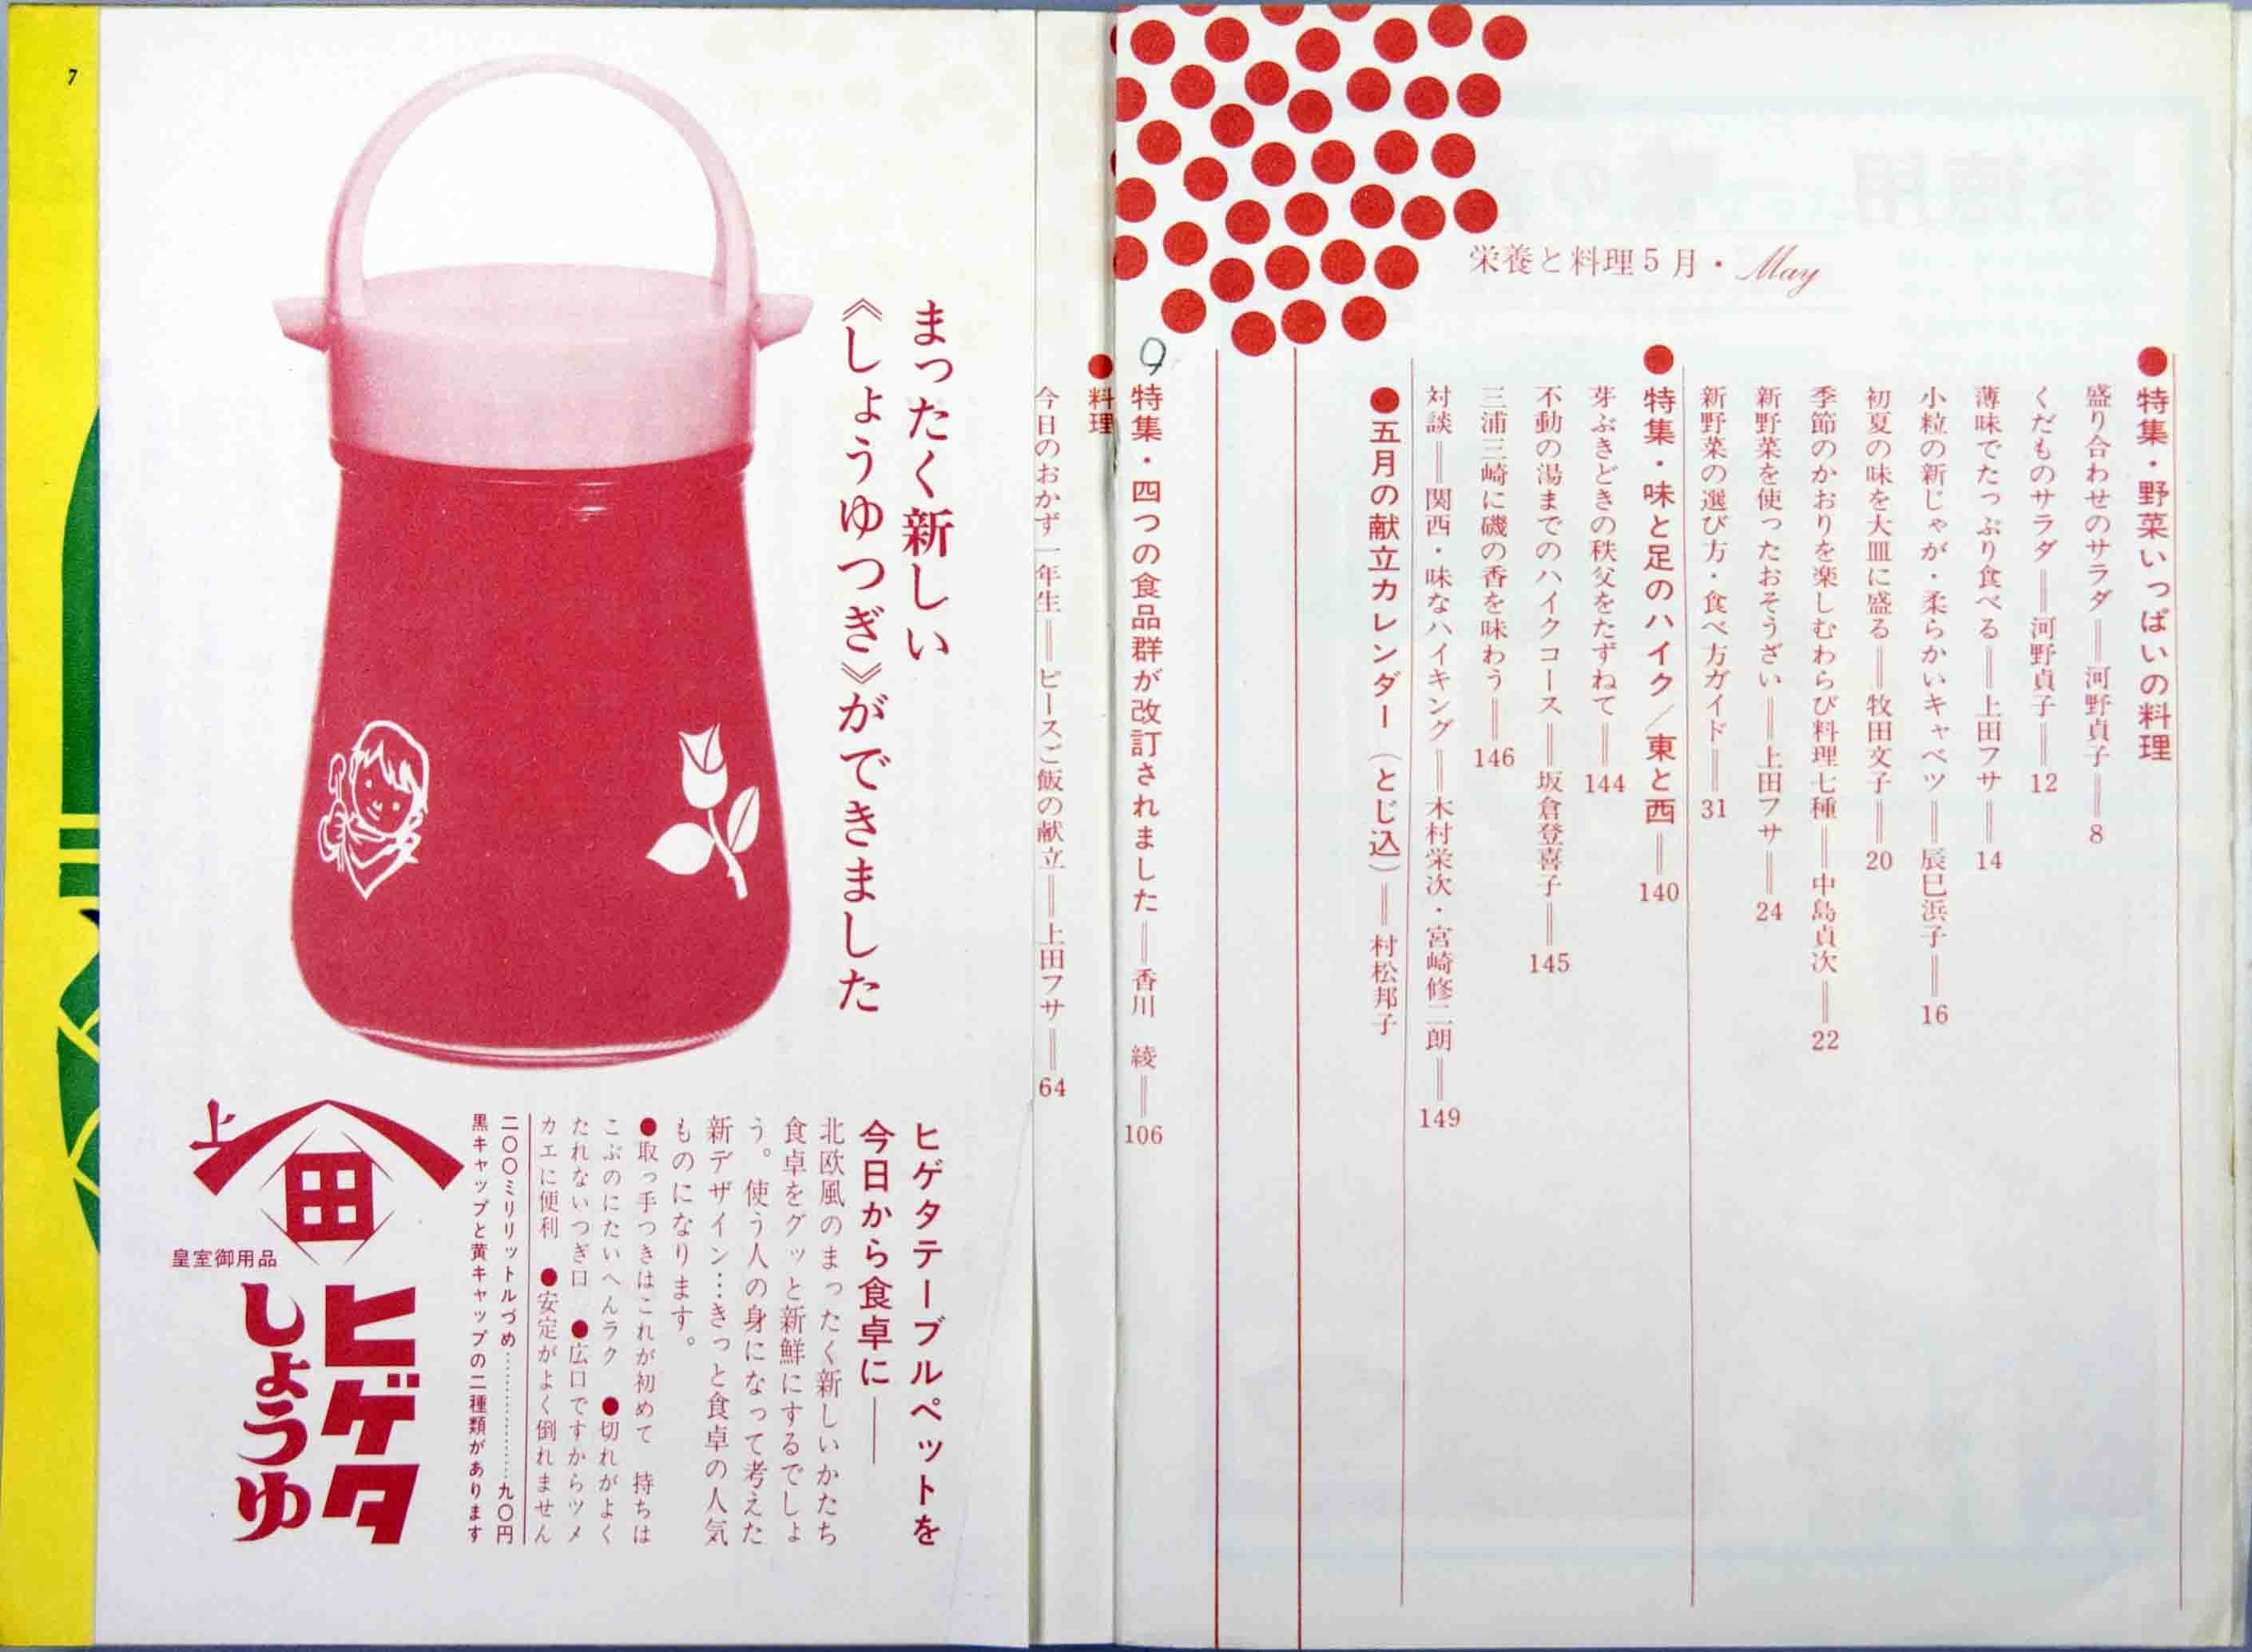 栄養と料理5月・May
●特集・野菜いっぱいの料理
盛り合わせのサラダ＝河野貞子＝8
くだものサラダ＝河野貞子＝12
薄味でたっぷり食べる＝上田フサ＝14
小粒の新じゃが・柔らかいキャベツ＝辰巳浜子＝16
初夏の味を大皿に盛る＝牧田文子＝20
季節のかおりを楽しむわらび料理七種＝中島貞次＝22
新野菜を使ったおそうざい＝上田フサ＝24
新野菜の選び方・食べ方ガイド＝31
●特集・味と足のハイク／東と西＝140
芽ぶきどきの秩父をたずねて＝144
不動の湯までのハイクコース＝坂倉登喜子＝145
三浦三崎に磯の香を味わう＝146
対談＝関西・味なハイキング＝木村栄次・宮崎修二朗＝149
●五月の献立カレンダー（とじ込）＝村松邦子
9
特集・四つの食品群が改訂されました＝香川　綾＝106
●料理
今日のおかず一年生＝ピースご飯の献立＝上田フサ＝64
まったく新しい
《しょうゆつぎ》ができました
ヒゲタテーブルペットを
今日から食卓に――
北欧風のまったく新しいかたち
食卓をグッと新鮮にするでしょ
う。使う人の身になって考えた
新デザイン…きっと食卓の人気
ものになります。
●取っ手つきはこれが初めて　持ちは
こぶのにたいへんラク　●切れがよく
たれないつぎ口　●広口ですからツメ
カエに便利　●安定がよく倒れません
二〇〇ミリリットルづめ………………九〇円
黒キャップと黄キャップの二種類があります
上
田
皇室御用品
ヒゲタ
しょうゆ
7